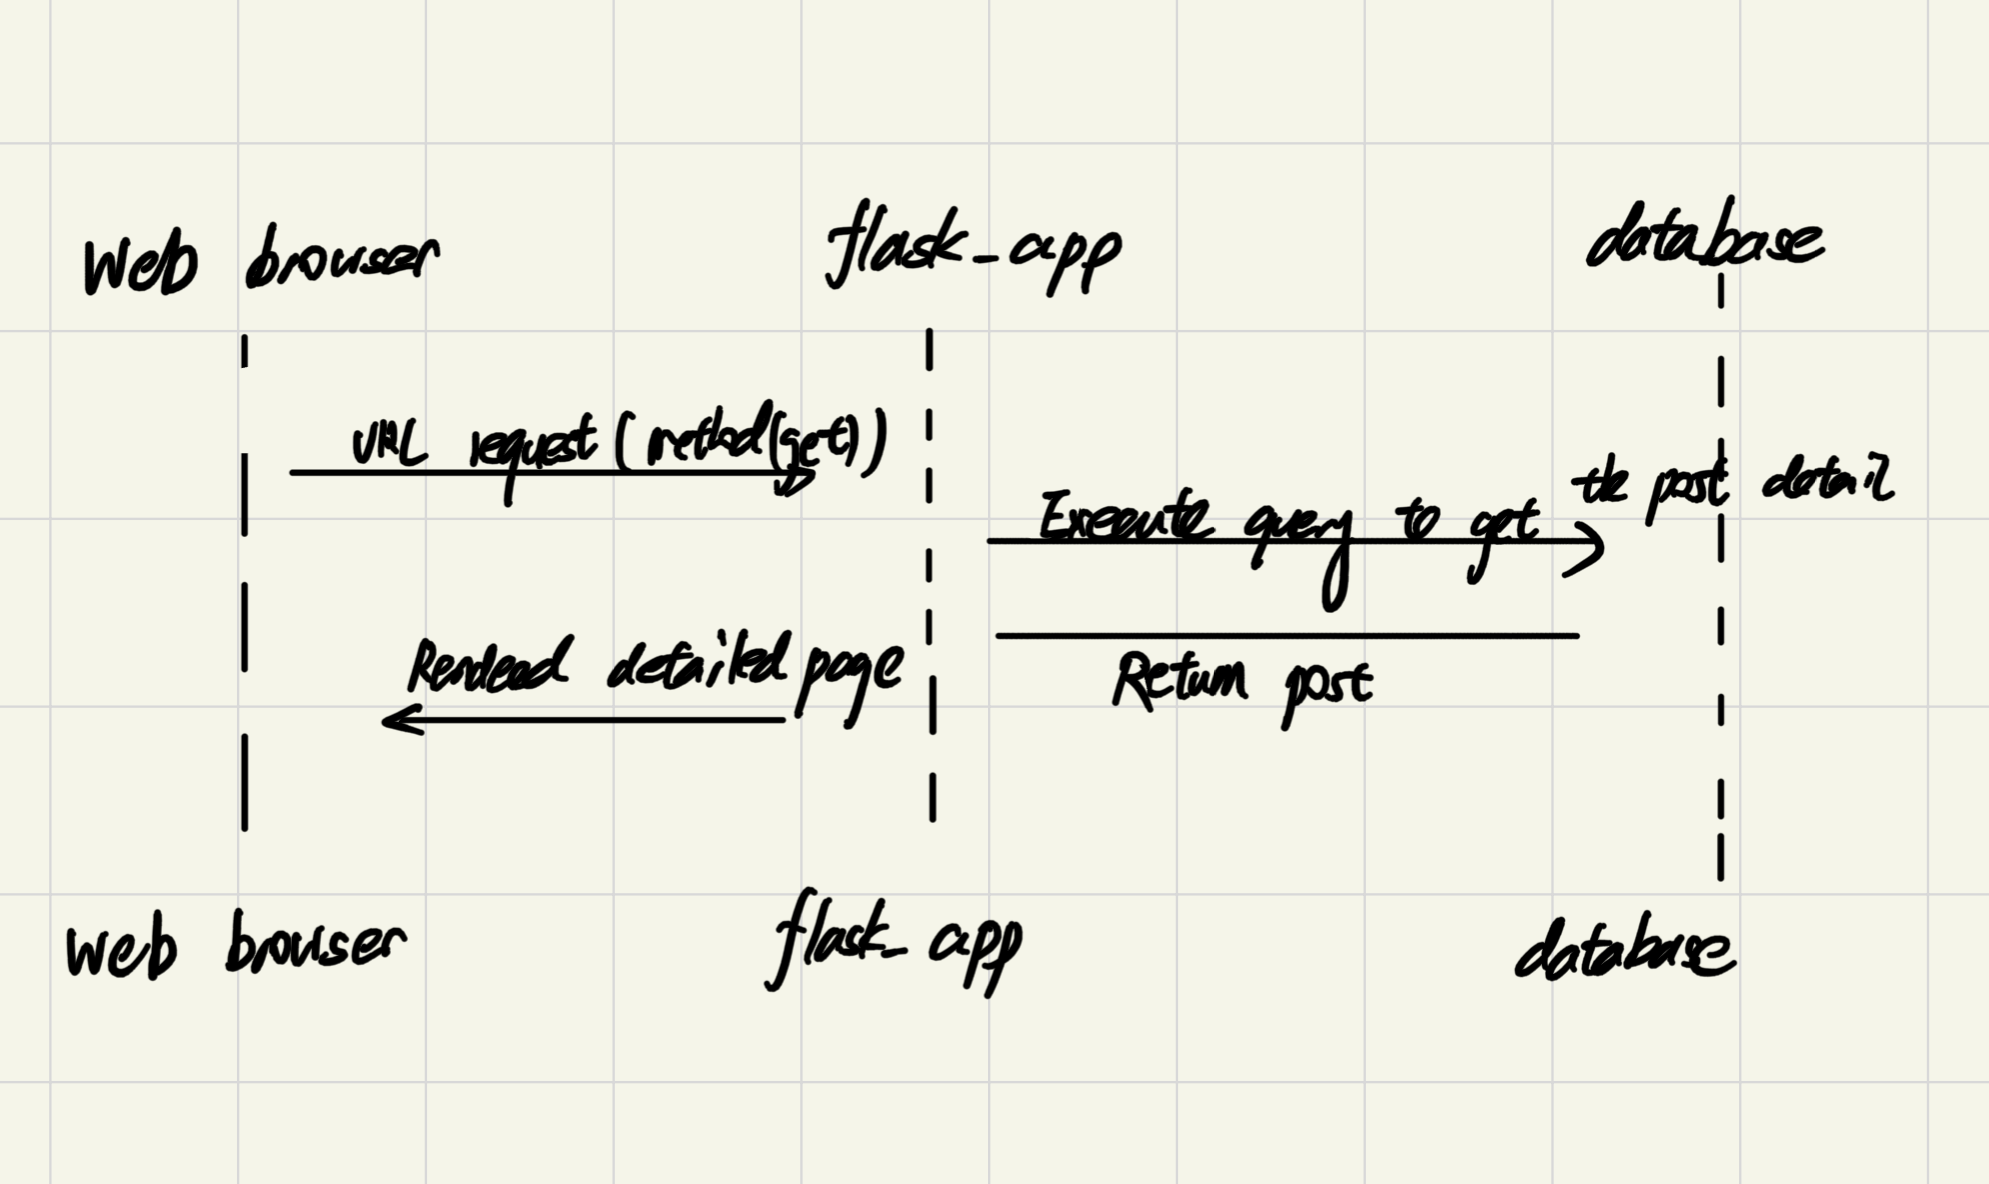 Web browser
flask_app
database
URL request (method(get))
Execute query to get the post detail
Return post
Rendered detailed page
web browser
flask_app
database